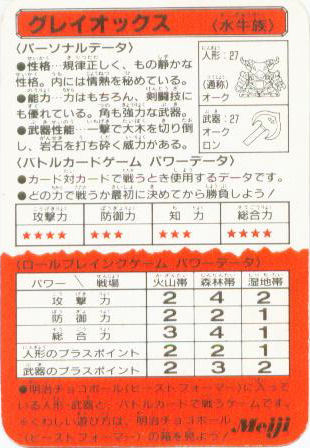 グレイオックス 〈水牛族〉
〈パーソナルデータ〉
●性格…規律正しく、もの静かな
性格。内には情熱を秘めている。
●能力…力はもちろん、剣闘技に
も優れている。角も強力な武器。
●武器性能…一撃で大木を切り倒
し、岩石を打ち砕く威力がある。
人形：27
(通称)
オーク
武器：27
オーク
ロン
〈バトルカードゲーム パワーデータ〉
●カード対カードで戦うとき使用するデータです。
●どの力で戦うか最初に決めてから勝負しよう！
攻撃力 防御力 知力 総合力
★★★★ ★★★ ★★★ ★★★★
〈ロールプレイングゲーム パワーデータ〉
パワー＼戦場 火山帯 森林帯 湿地帯
攻撃力 2 4 2
防御力 2 2 1
総合力 3 4 1
人形のプラスポイント 2 2 1
武器のプラスポイント 2 3 2
●明治チョコボール(ビーストフォーマー)に入って
いる人形・武器と、バトルカードで戦うゲームです。
＊くわしい遊び方は、明治チョコボール
(ビーストフォーマー)の箱を見よう！
Meiji